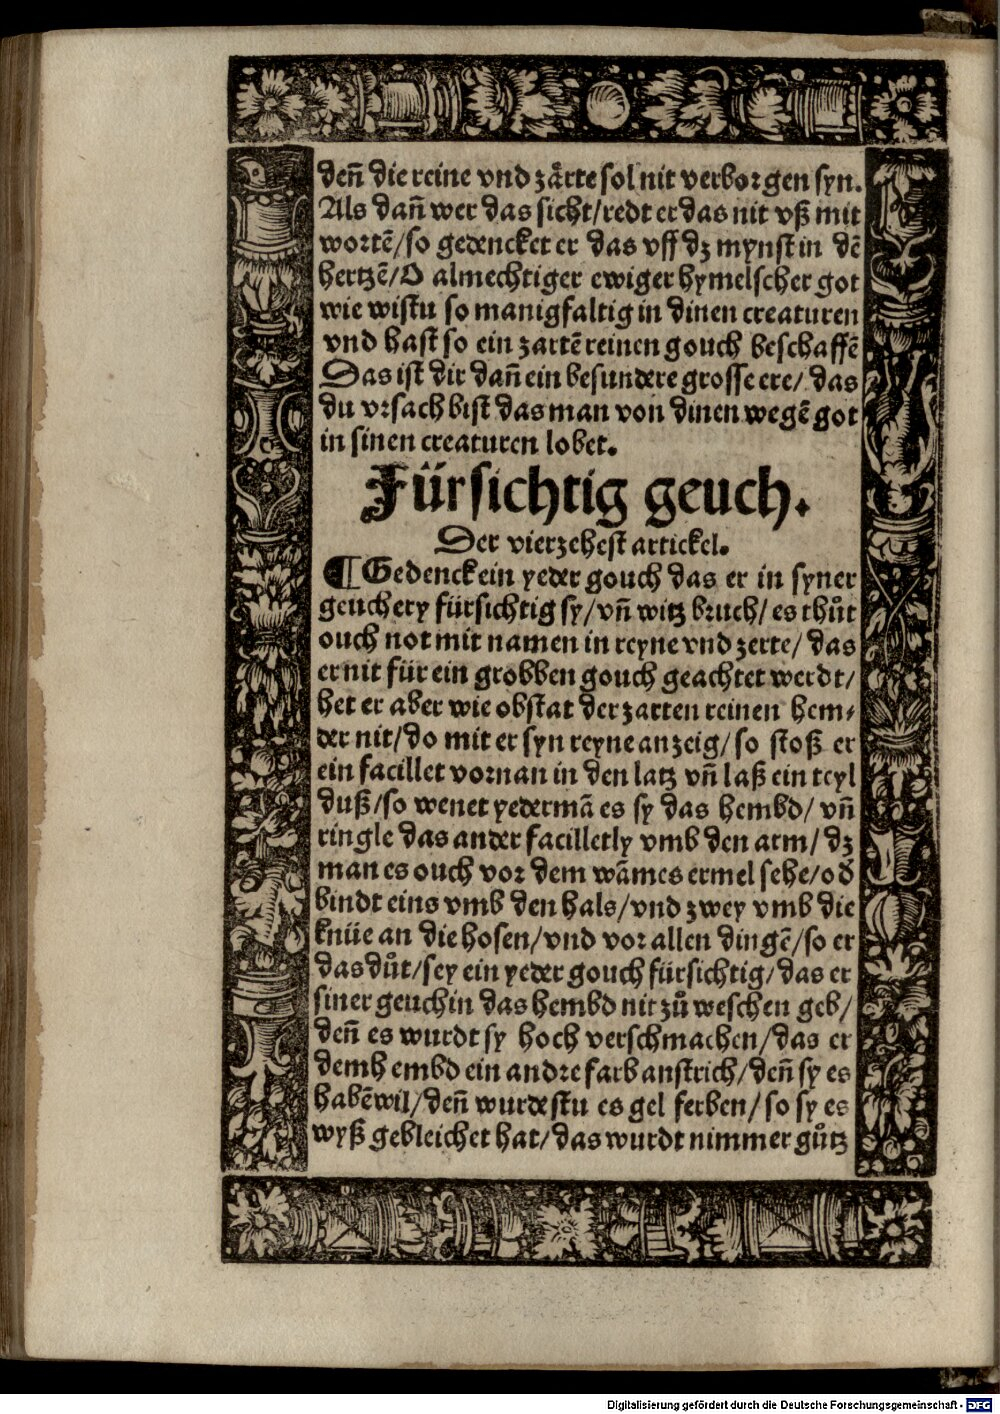 deñ die reine vnd zårte sol nit verborgen syn.
Als dañ wer das sicht/redt er das nit vß mit
wortē/so gedencket er das vff dz mynst in dē
hertzē/O almechtiger ewiger hymelscher got
wie wistu so manigfaltig in dinen creaturen
vnd hast so ein zartē reinen gouch beschaffē
Das ist dir dañ ein besundere grosse ere/ das
du vrsach bist das man von dinen wegē got
in sinen creaturen lobet.
Fürsichtig geuch.
Der vierzehest artickel.
¶Gedenck ein yeder gouch das er in syner
geuchery fürsichtig sy/vñ witz bruch/es thůt
ouch not mit namen in reyne vnd zerte/ das
er nit für ein grobben gouch geachtet werdt/
het er aber wie obstat der zarten reinen hem⸗
der nit/do mit er syn reyne anzeig/so stoß er
ein facillet vornan in den latz vñ laß ein teyl
duß/so wenet yedermā es sy das hembd/ vñ
ringle das ander facilletly vmb den arm/ dz
man es ouch vor dem wāmes ermel sehe/od
bindt eins vmb den hals/vnd zwey vmb die
knüe an die hosen/vnd vor allen dingē/so er
das důt/sey ein yeder gouch fürsichtig/das er
siner geuchin das hembd nit zů weschen geb/
deñ es wurdt sy hoch verschmachen/das er
dem hembd ein andre farb anstrich/deñ sy es
habē wil/deñ wurdestu es gel ferben/so sy es
wyß gebleichet hat/das wurdt nimmer gůtz
Digitalisierung gefördert durch die Deutsche Forschungsgemeinschaft - DFG